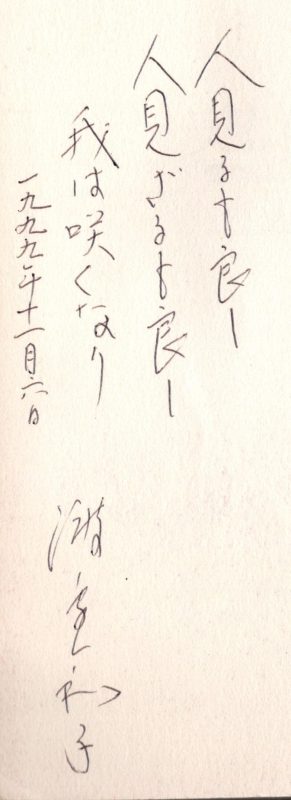 人見るも良し
人見ざるも良し
我は咲くなり
一九九九年十一月六日
渡辺和子